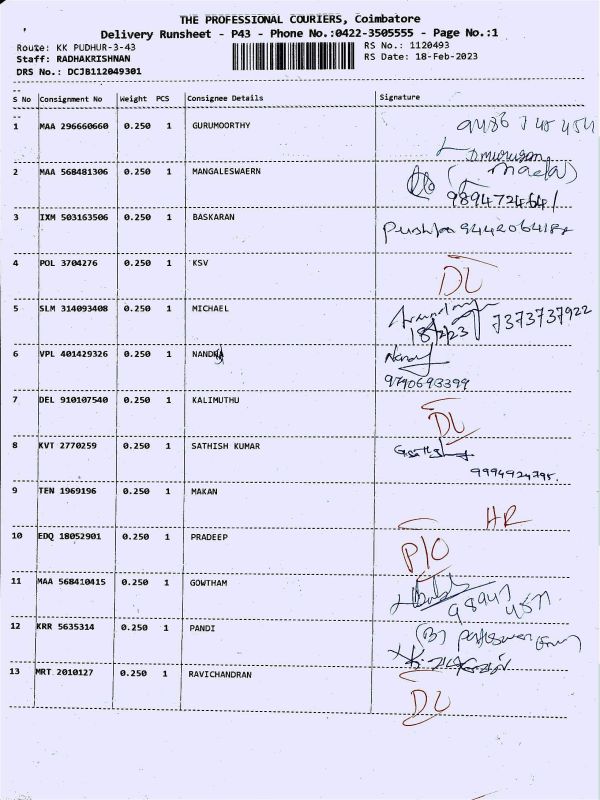 THE PROFESSIONAL COURIERS, Coimbatore
Delivery Runsheet - P43 - Phone No.:0422-3505555 - Page No.:1
Route: KK PUDHUR-3-43 RS No.: 1120493
Staff: RADHAKRISHNAN RS Date: 18-Feb-2023
DRS No.: DCJB112049301
S No Consignment No Weight PCS Consignee Details Signature
1 MAA 296660660 0.250 1 GURUMOORTHY
2 MAA 568481306 0.250 1 MANGALESWAERN
3 IXM 503163506 0.250 1 BASKARAN
4 POL 3704276 0.250 1 KSV DL
5 SLM 314093408 0.250 1 MICHAEL 18/2/23 7373737922
6 VPL 401429326 0.250 1 NANDHA
9790693399
7 DEL 910107540 0.250 1 KALIMUTHU DL
8 KVT 2770259 0.250 1 SATHISH KUMAR
9994924795.
9 TEN 1969196 0.250 1 MAKAN HR
10 EDQ 18052901 0.250 1 PRADEEP P/O
11 MAA 568410415 0.250 1 GOWTHAM
12 KRR 5635314 0.250 1 PANDI
13 MRT 2010127 0.250 1 RAVICHANDRAN DL